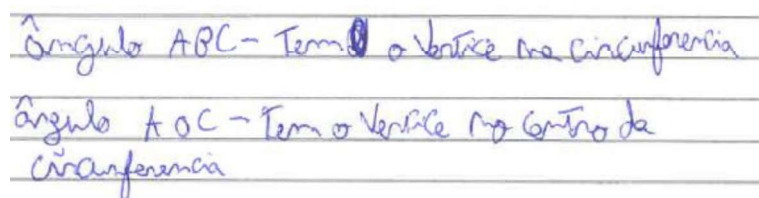 ângulo ABC - Tem o Vertice na circunferencia
ângulo AOC - Tem o Vertice no centro da
circunferencia